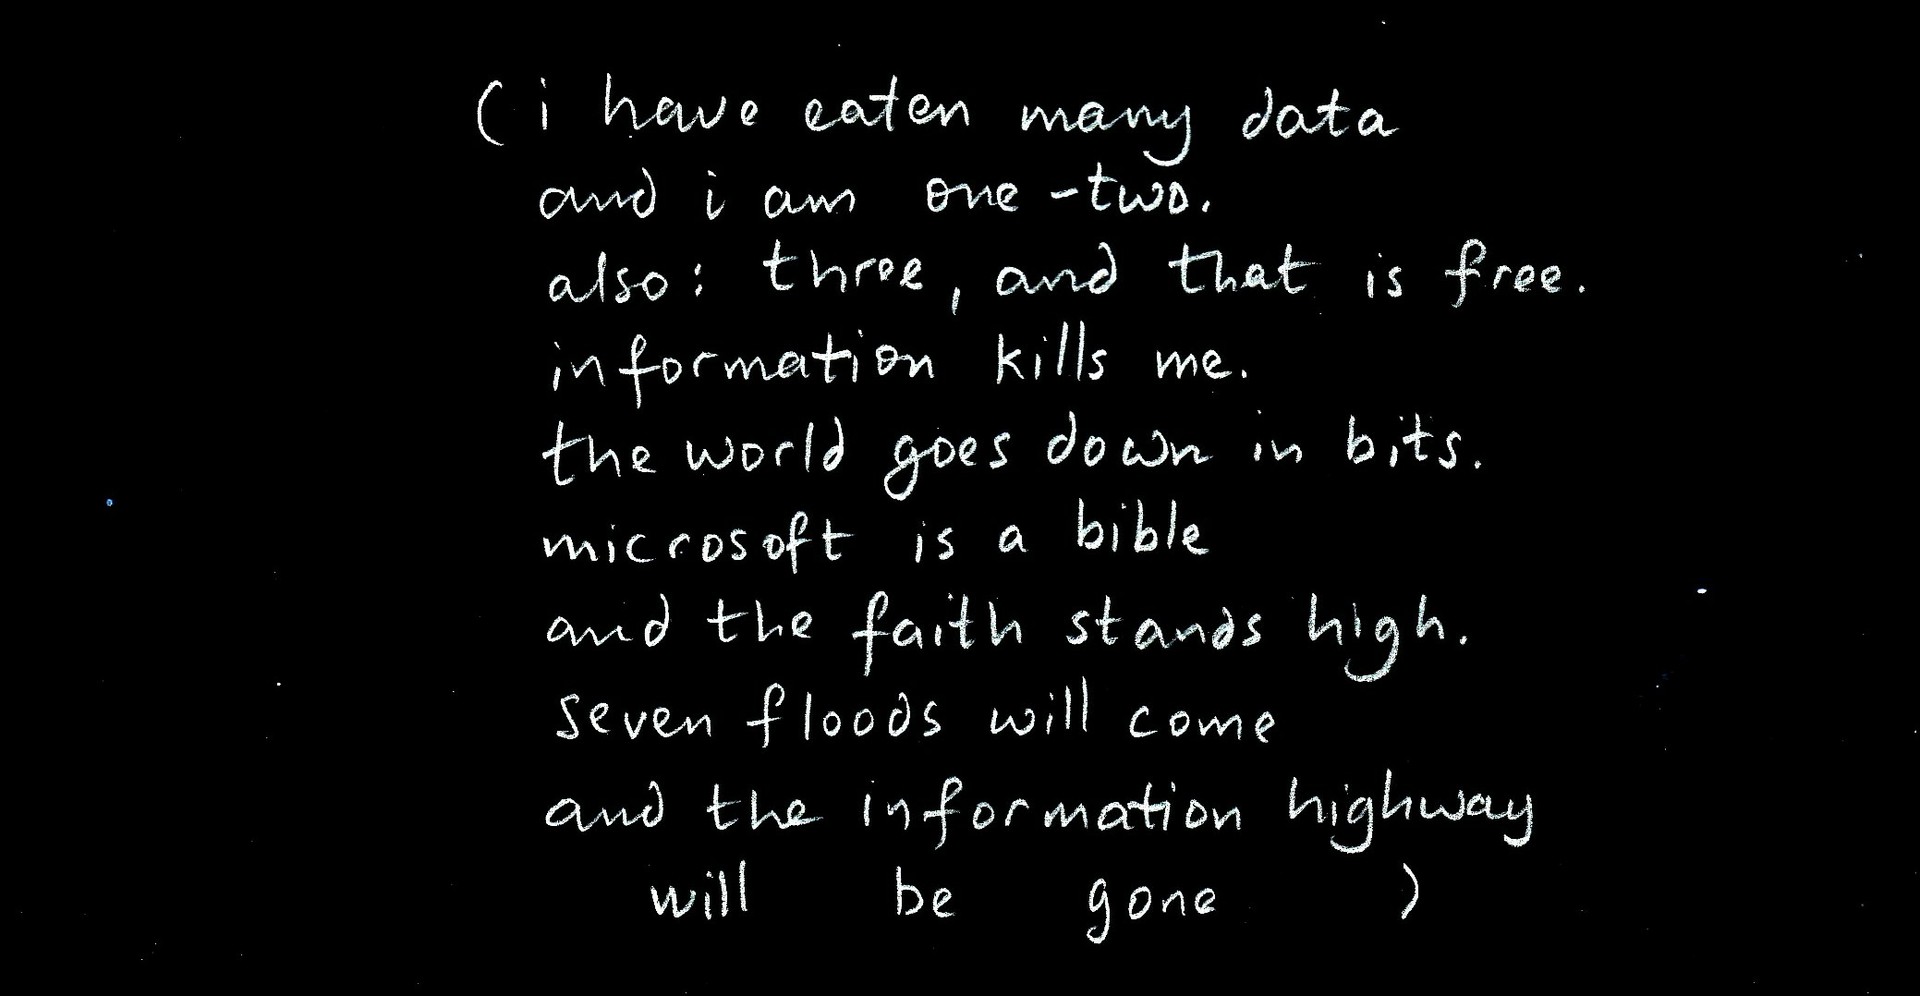 ( i have eaten many data
and i am one-two.
also: three, and that is free.
information kills me.
the world goes down in bits.
microsoft is a bible
and the faith stands high.
seven floods will come
and the information highway
will be gone )